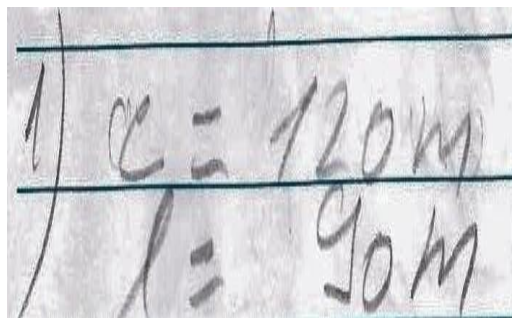 1) c = 120 m
l = 90 m